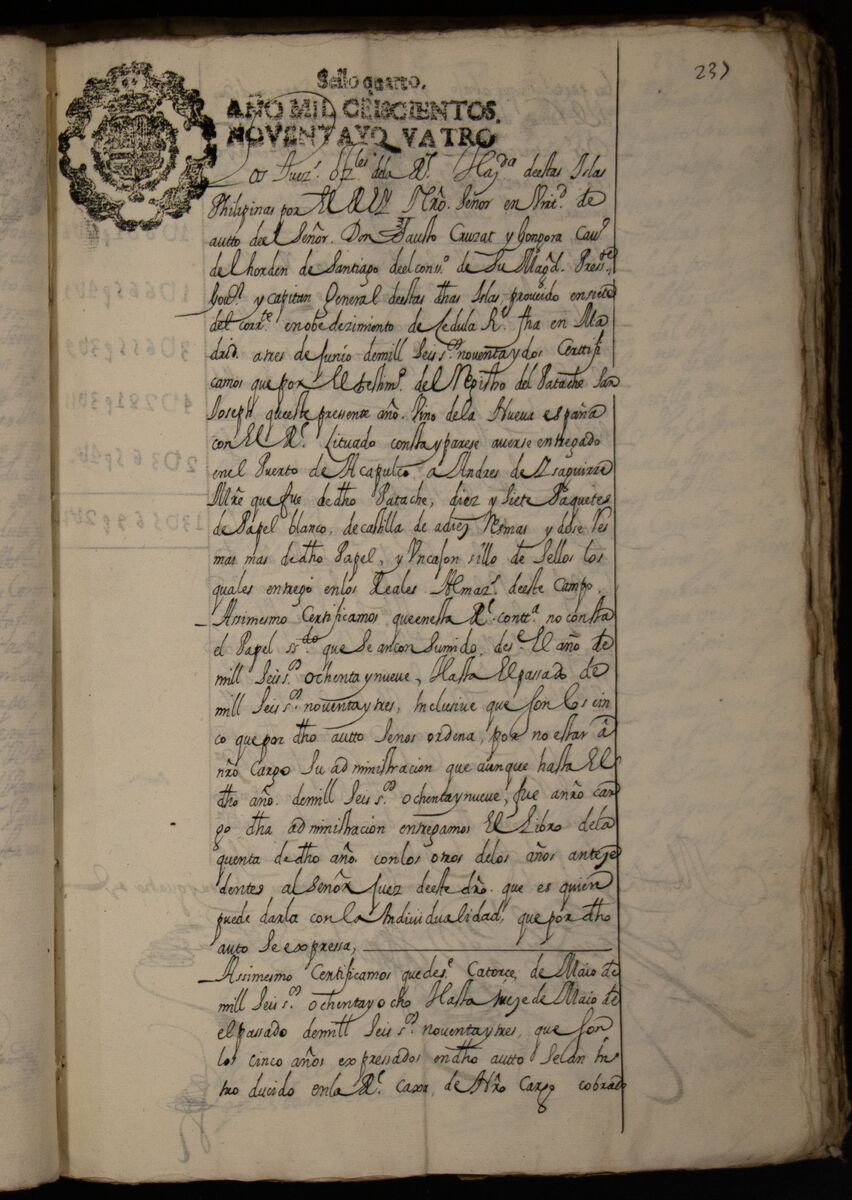 237
Sello quarto,
AÑO MIL CEISCIENTOS,
NOVENTAYQVATRO
Los Juezs. ofzles dela Rl. Hazda deestas Islas
Philipinas por El Rey Nro. Señor en Virtd. de
autto del Señor. Don Fausto Cruzat y Gongora Cavo.
del horden de Santiago deel conso. de Su Magd. Presste.
Govor. y capitan General deestas dhas Islas, proueido en siete
del corrte. en obedezimiento de cedula Rl. fha en Ma
drid. a tres de Junio demill seis sos. noventaydos Certtifi
camos que por El testimo. del Registro del Patache San
Joseph queeste pressente año. Vino dela Nueva españa
con El Rl. Situado consta y parese averse entregado
en el Puerto de Acapulco, a Andres de Ysaguirre
Mre que fue de dho Patache, diez y siete Paquetes
de Papel blanco, decastilla de adiez Resmas y dose Res
mas mas de dho Papel, y Un cajon sillo de sellos los
quales entregó en los Reales Almazs. deeste Campo.
Assimesmo Certificamos queenesta Rl. conttra. no consta
el Papel ssdo que se an con sumido, dese. El año de
mill seis sos. ochentaynueve, Hasta El passado de
mill seis sos. noventaytres, inclusive que son los cin
co que por dho autto senos ordena, por no estar à
nro Cargo su administracion que aunque hasta El
dho año. demill seis sos ochentaynueve, fue a nro car
go dha administracion entregamos El Libro dela
quenta de dho año. con los otros delos años anteze
dentes al Señor Juez deeste dro. que es quien
puede darla con la Individualidad, que por dho
auto se expressa,
Assimesmo Certificamos que dese. Catorce, de Maio de
mill seis sos. ochentayocho Hasta treze de Maio de
el passado demill seis sos. noventaytres, que son
los cinco años expressados en dho autto se an in
tro ducido en la Rl. caxa, de Nro Cargo cobrado